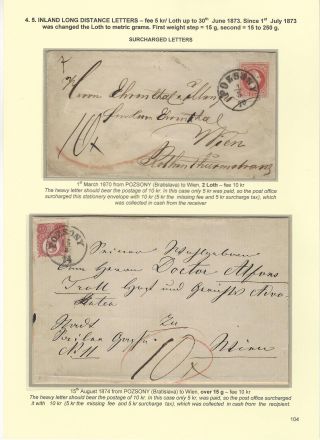 4. 5. INLAND LONG DISTANCE LETTERS – fee 5 kr/ Loth up to 30th June 1873. Since 1st July 1873
was changed the Loth to metric grams. First weight step = 15 g, second = 15 to 250 g.
SURCHARGED LETTERS
POZSONY
Herrn Ehrenthal
Wien
10x
1st March 1870 from POZSONY (Bratislava) to Wien, 2 Loth – fee 10 kr
The heavy letter should bear the postage of 10 kr. In this case only 5 kr was paid, so the post office surcharged
this stationery envelope with 10 kr (5 kr the missing fee and 5 kr surcharge tax), which
was collected in cash from the receiver
POZSONY
Seiner Wohlgeboren
Herrn Doctor Alfons
Trott Hof und Gerichts Advo-
katen
Stadt Zu
Wien
10x
15th August 1874 from POZSONY (Bratislava) to Wien, over 15 g – fee 10 kr
The heavy letter should bear the postage of 10 kr. In this case only 5 kr was paid, so the post office surcharged
it with 10 kr (5 kr the missing fee and 5 kr surcharge tax), which was collected in cash from the recipient.
104